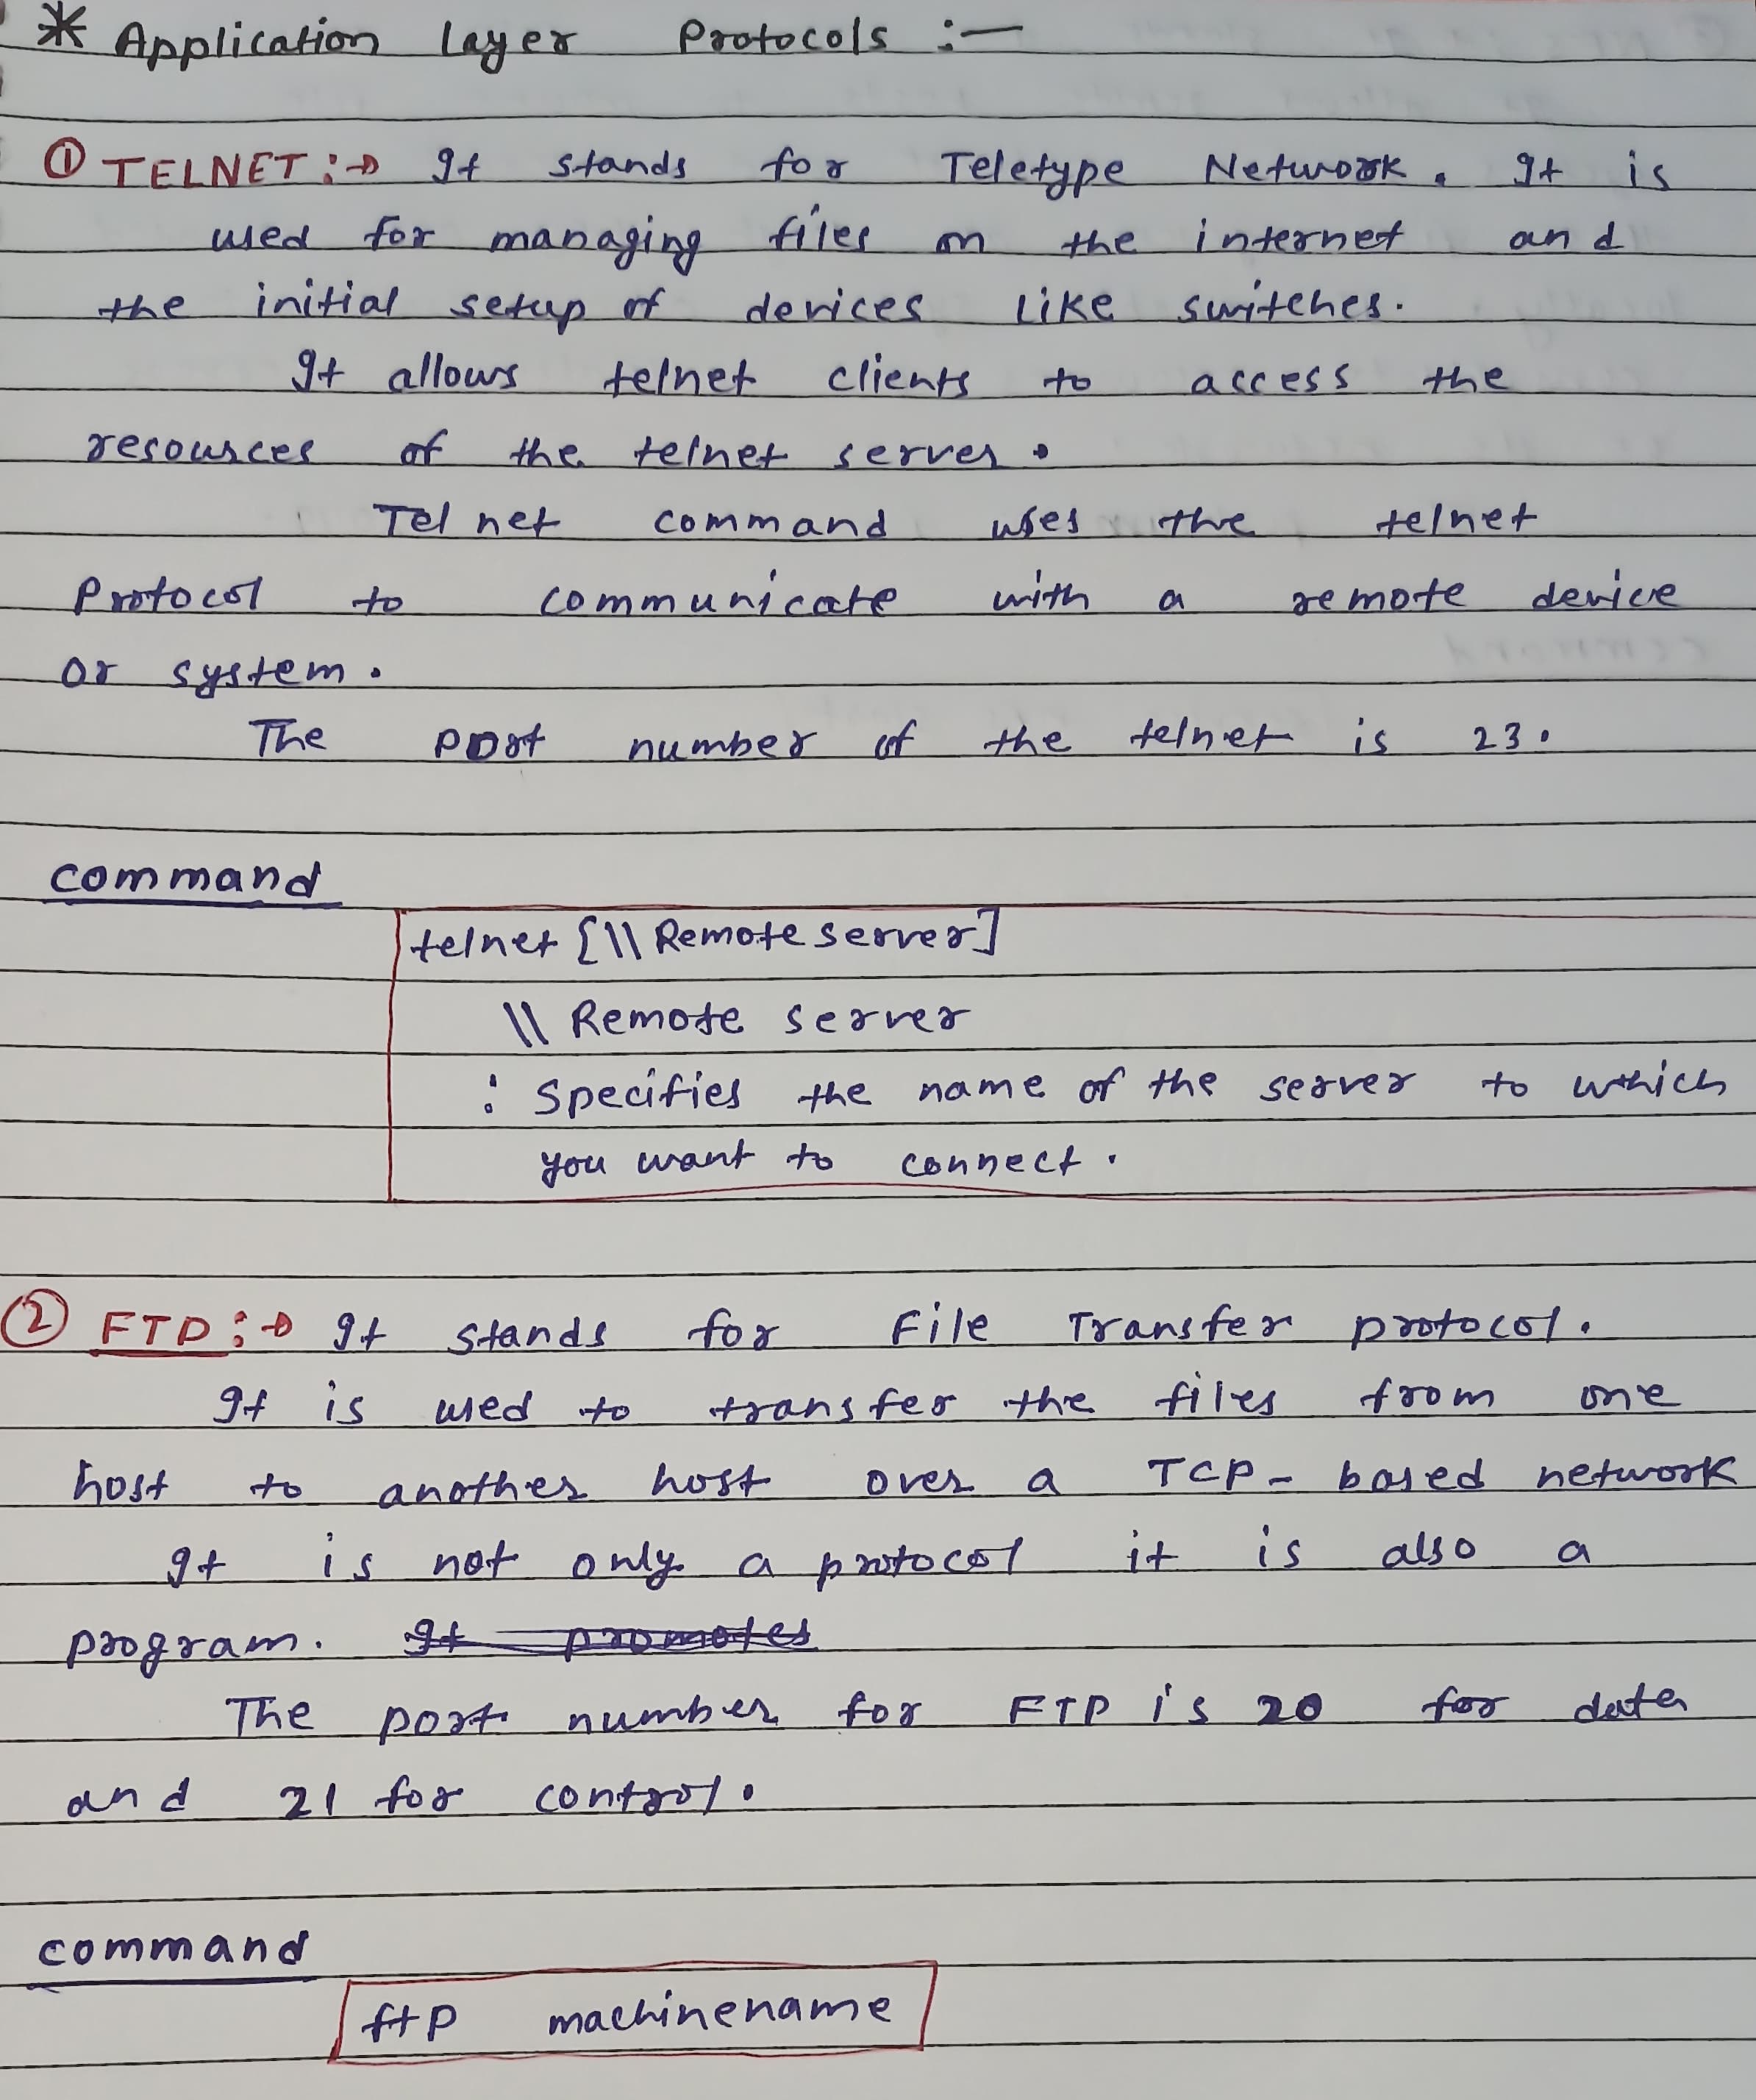 * Application layer Protocols :-
① TELNET :→ It stands for Teletype Network. It is
used for managing files on the internet and
the initial setup of devices like switches.
It allows telnet clients to access the
resources of the telnet server.
Telnet command uses the telnet
Protocol to communicate with a remote device
or system.
The port number of the telnet is 23.
command
telnet [\\ Remote server]
\\ Remote server
: Specifies the name of the server to which
you want to connect.
② FTP :→ It stands for File Transfer protocol.
It is used to transfer the files from one
host to another host over a TCP- based network
It is not only a protocol it is also a
program. It promotes
The port number for FTP is 20 for data
and 21 for control.
command
ftp machinename